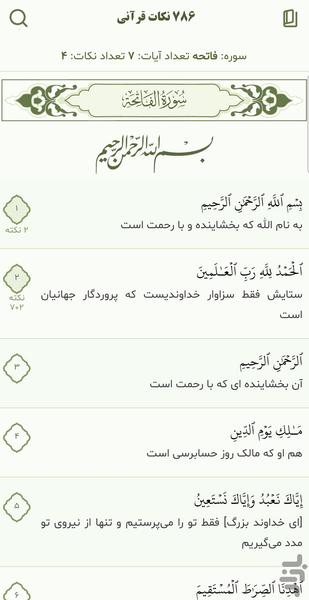 ۷۸۶ نکات قرآنی
سوره: فاتحه تعداد آیات: ۷ تعداد نکات: ۴
سُورَةُ الفَاتِحَة
بسم الله الرحمن الرحیم
بِسْمِ ٱللَّهِ ٱلرَّحْمَٰنِ ٱلرَّحِيمِ
۱
به نام الله که بخشاینده و با رحمت است
۲ نکته
ٱلْحَمْدُ لِلَّهِ رَبِّ ٱلْعَـٰلَمِينَ
۲
ستایش فقط سزاوار خداوندیست که پروردگار جهانیان
است
نکته
۷۰۲
ٱلرَّحْمَٰنِ ٱلرَّحِيمِ
۳
آن بخشاینده ای که با رحمت است
مَـٰلِكِ يَوْمِ ٱلدِّينِ
۴
هم او که مالک روز حسابرسی است
إِيَّاكَ نَعْبُدُ وَإِيَّاكَ نَسْتَعِينُ
۵
[ای خداوند بزرگ] فقط تو را می‌پرستیم و تنها از نیروی تو
مدد می‌گیریم
ٱهْدِنَا ٱلصِّرَٰطَ ٱلْمُسْتَقِيمَ
۶
بازار